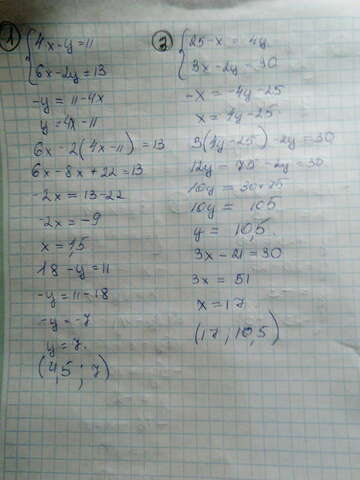 1
4x-y=11
6x-2y=13
-y = 11-4x
y=4x-11
6x-2(4x-11)=13
6x-8x+22=13
-2x=13-22
-2x=-9
x=4,5
18-y=11
-y=11-18
-y=-7
y=7.
(4,5; 7)
2
25-x = -4y
3x-2y=30
-x = -4y-25
x = 4y-25
3(4y-25)-2y=30
12y-75-2y=30
10y=30+75
10y= 105
y= 10,5.
3x-21=30
3x=51
x=17
(17; 10,5)